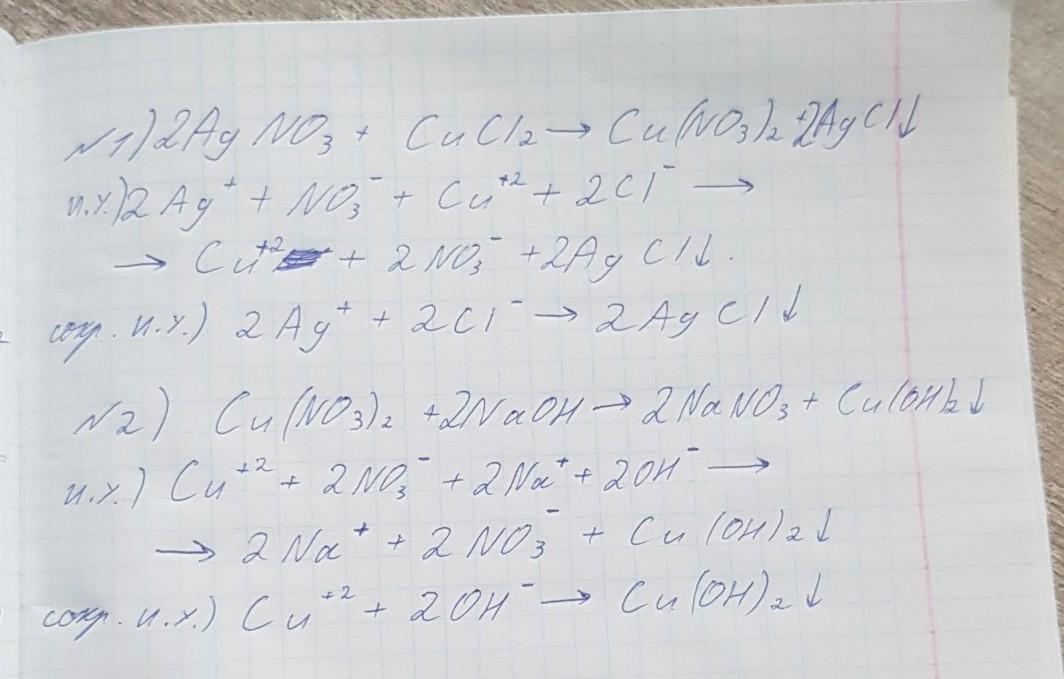 №1) 2AgNO₃ + CuCl₂ → Cu(NO₃)₂ + 2AgCl↓
и.у.) 2Ag⁺ + NO₃⁻ + Cu⁺² + 2Cl⁻ →
→ Cu⁺² + 2NO₃⁻ + 2AgCl↓.
сокр. и.у.) 2Ag⁺ + 2Cl⁻ → 2AgCl↓
№2) Cu(NO₃)₂ + 2NaOH → 2NaNO₃ + Cu(OH)₂↓
и.у.) Cu⁺² + 2NO₃⁻ + 2Na⁺ + 2OH⁻ →
→ 2Na⁺ + 2NO₃⁻ + Cu(OH)₂↓
сокр. и.у.) Cu⁺² + 2OH⁻ → Cu(OH)₂↓